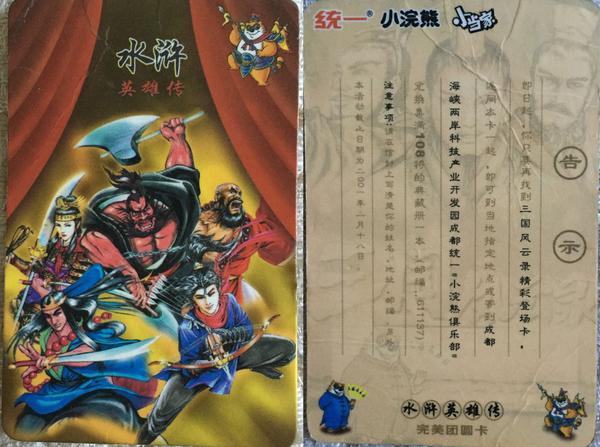 水浒
英雄传
统一® 小浣熊 小当家
告示
即日起,你只要再找到三国风云录精彩登场卡,
连同本卡一起,即可到当地指定地点或寄到成都
海峡两岸科技产业开发园成都统一"小浣熊俱乐部"
兑换集满108将的典藏册一本。(邮编:611137)
注意事项:请在信封上写清楚你的姓名、地址、邮编,
本活动截止日期为二00一年一月十八日。
水浒英雄传
完美团圆卡